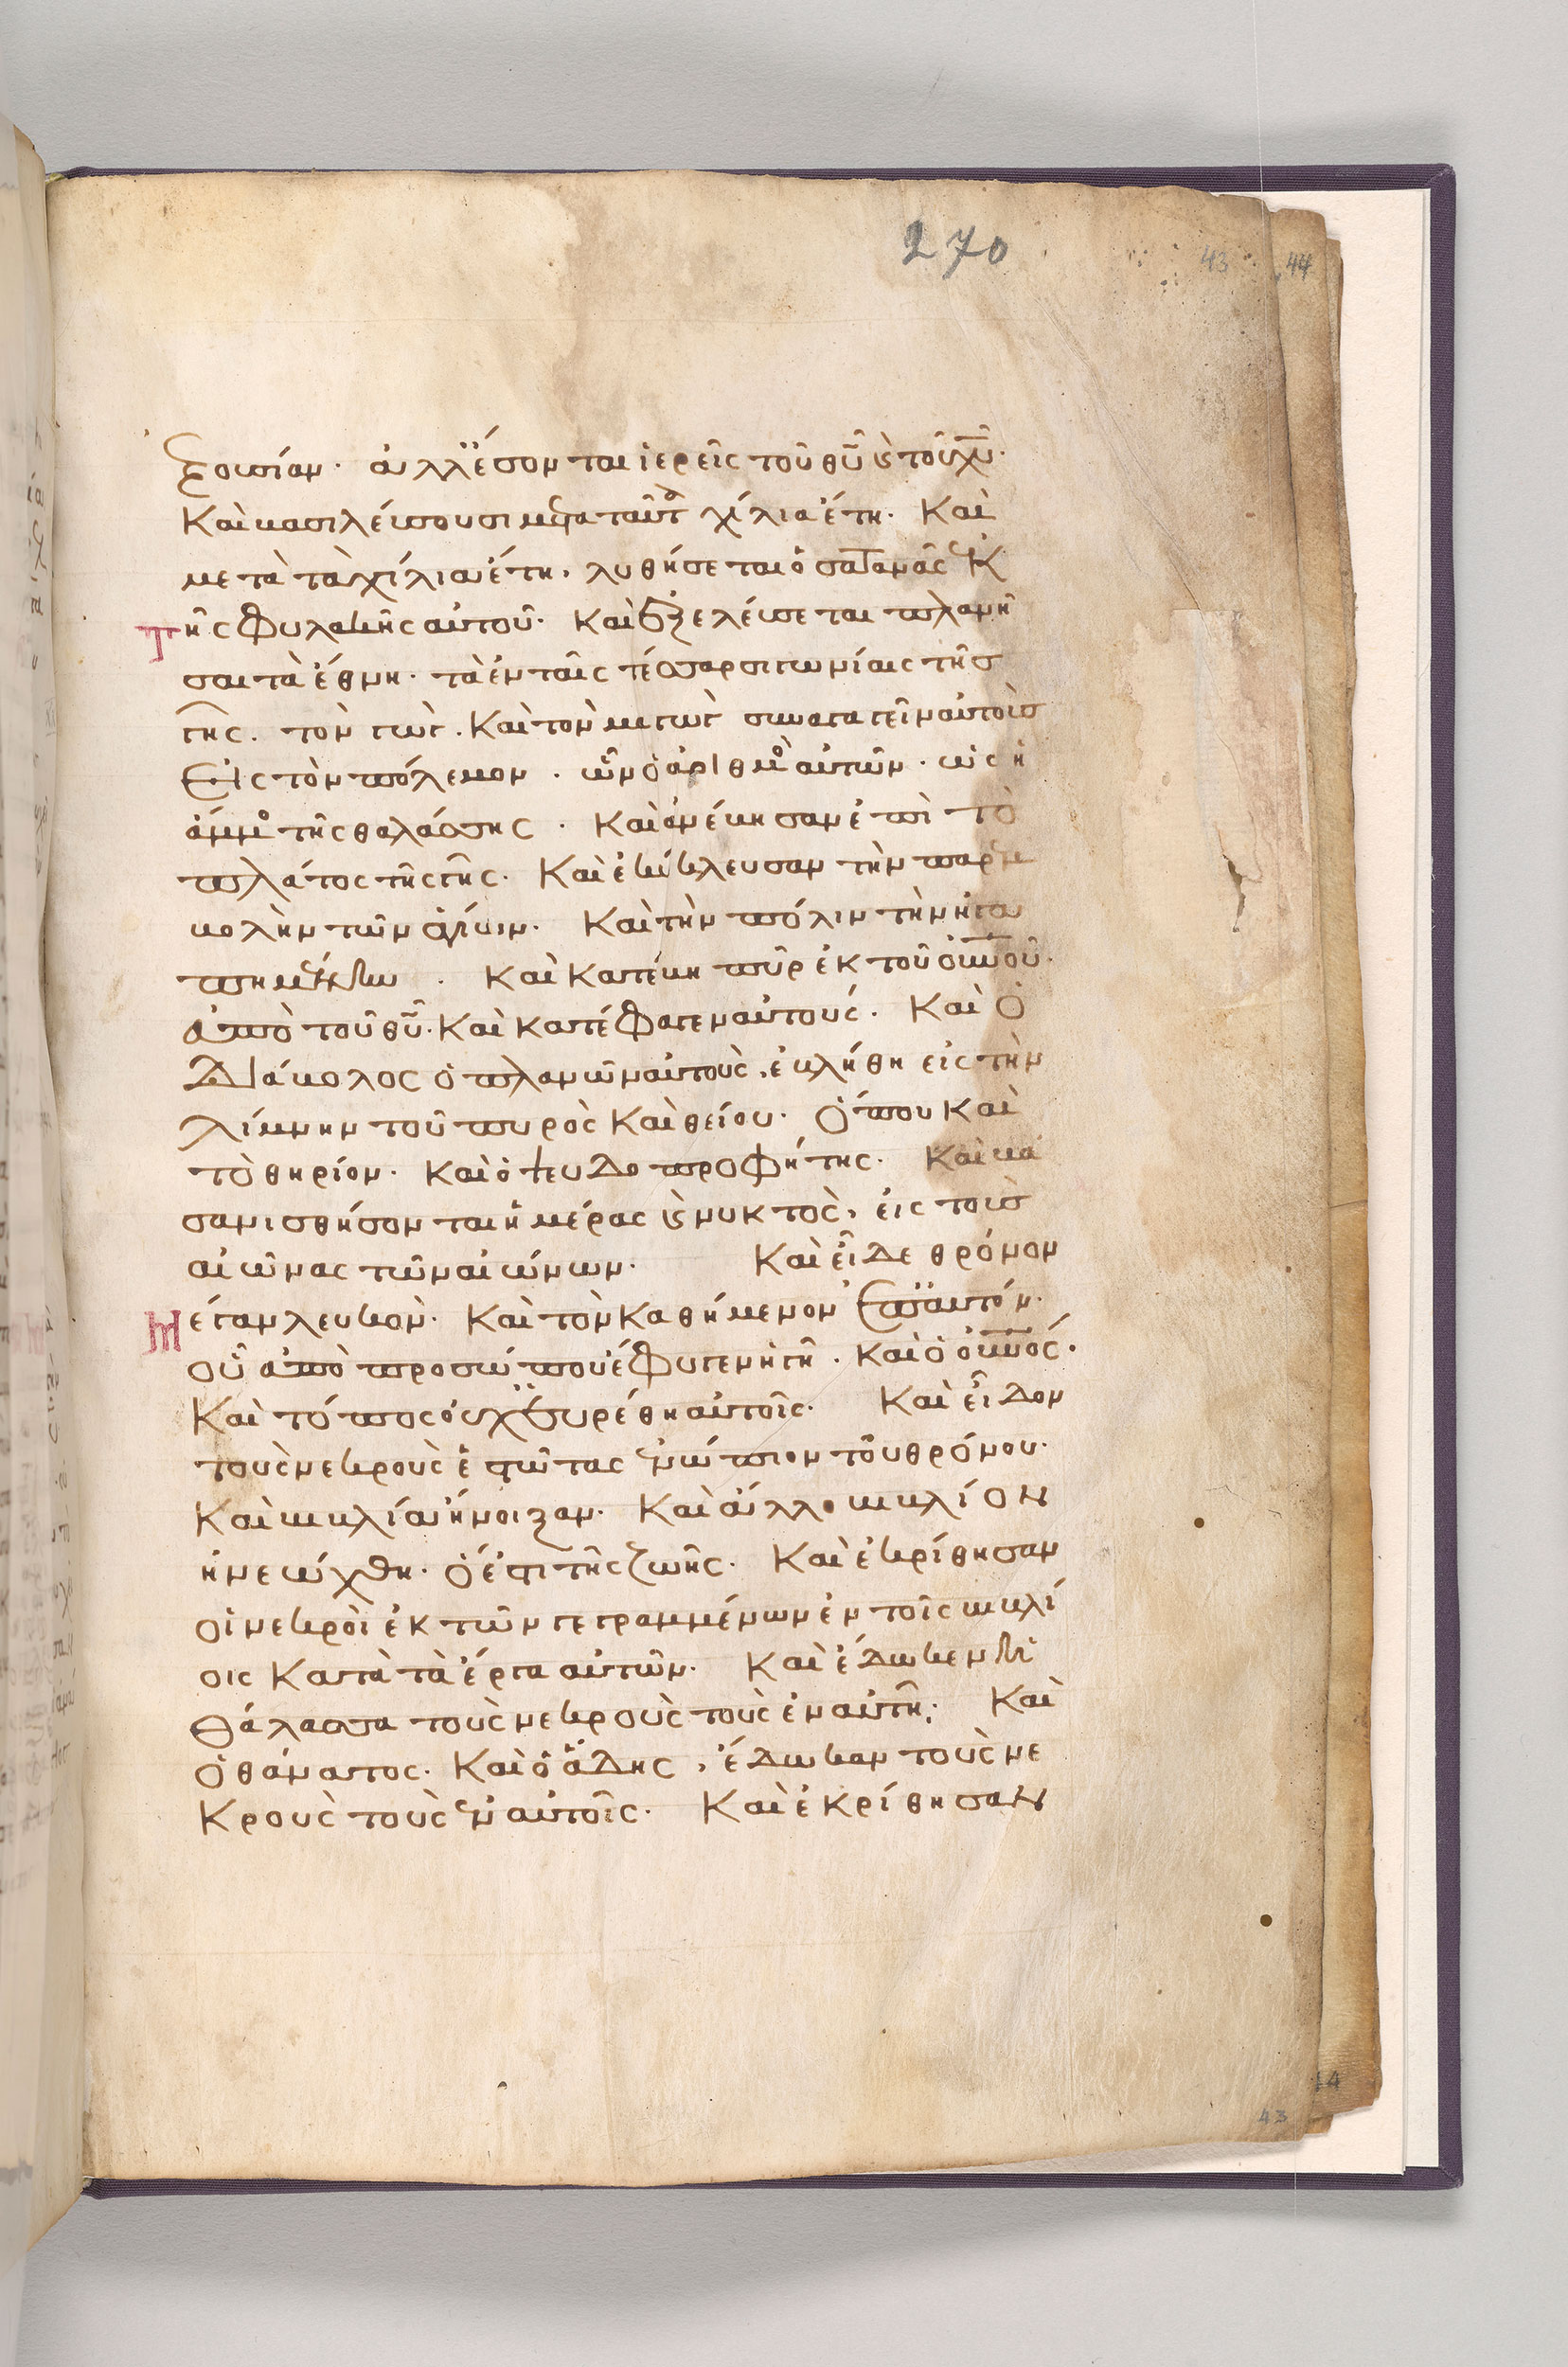 ξουσίαν· ἀλλ' ἔσονται ἱερεῖς τοῦ θῦ καὶ τοῦ χῦ·
Καὶ βασιλεύσουσι μετα ταῦτ χίλια ἔτη· Καὶ
μετὰ τὰ χίλια ἔτη, λυθήσεται ὁ σατανᾶς ἐκ
τῆς φυλακῆς αὐτοῦ· Καὶ ἐξελεύσεται πλανῆ
σαι τὰ ἔθνη· τὰ ἐν ταῖς τέσσαρσι γωνίαις τῆς
γῆς. τὸν γὼγ. Καὶ τὸν μαγὼγ συναγαγεῖν αὐτοὺς
Εἰς τὸν πόλεμον. ὧν ὁ ἀριθμὸ αὐτῶν. ὡς ἡ
ἄμμο τῆς θαλάσσης. Καὶ ἀνέβησαν ἐπὶ τὸ
πλάτος τῆς γῆς. Καὶ ἐκύκλευσαν τὴν παρεμ
βολὴν τῶν ἁγίων. Καὶ τὴν πόλιν τὴν ἠγα
πημένην. Καὶ κατέβη πῦρ ἐκ τοῦ οὐνοῦ·
ἀπὸ τοῦ θῦ. Καὶ κατέφαγεν αὐτούς. Καὶ ὁ
Διάβολος ὁ πλανῶν αὐτοὺς, ἐβλήθη εἰς τὴν
λίμνην τοῦ πυρὸς Καὶ θείου· Ὅπου Καὶ
τὸ θηρίον· Καὶ ὁ ψευδοπροφήτης· Καὶ βα
σανισθήσονται ἡμέρας καὶ νυκτὸς, εἰς τοὺς
αἰῶνας τῶν αἰώνων. Καὶ εἶδε θρόνον
Μέγαν λευκὸν· Καὶ τὸν Καθήμενον ἐπ' αὐτόν.
οὗ ἀπὸ προσώπου ἔφυγεν ἡ γῆ. Καὶ ὁ οὐνός.
Καὶ τόπος οὐχ' εὑρέθη αὐτοῖς· Καὶ εἶδον
τοὺς νεκροὺς ἑστῶτας ἐνώπιον τοῦ θρόνου·
Καὶ βιβλία ἤνοιξαν· Καὶ ἄλλο βιβλίον
ἠνεώχθη· ὅ ἐστι τῆς ζωῆς· Καὶ ἐκρίθησαν
οἱ νεκροὶ ἐκ τῶν γεγραμμένων ἐν τοῖς βιβλί
οις Κατὰ τὰ ἔργα αὐτῶν· Καὶ ἔδωκεν ἡ
θάλασσα τοὺς νεκροὺς τοὺς ἐν αὐτῇ· Καὶ
ὁ θάνατος. Καὶ ὁ ἅδης, ἔδωκαν τοὺς νε
Κροὺς τοὺς ἐν αὐτοῖς· Καὶ ἐκρίθησαν
270
43
44
44
43